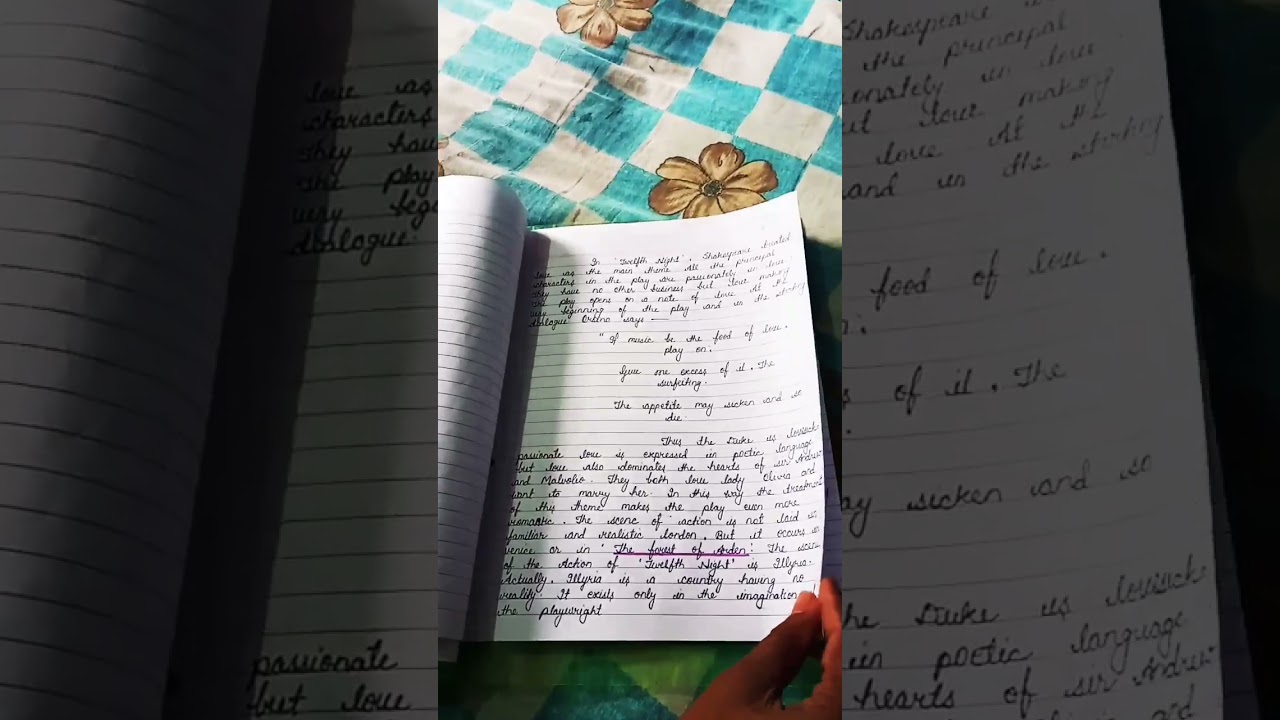 In 'Twelfth Night', Shakespeare treated
love as the main theme. All the principal
characters in the play are passionately in love
They have no other business but love making
The play opens on a note of love. At the
very beginning of the play and in the striking
dialogue Orsino says —
"If music be the food of love.
play on.
Give me excess of it. The
surfeiting.
The appetite may sicken and so
die.
Thus the Duke is lovesick
passionate love is expressed in poetic language
but love also dominates the hearts of sir Andrew
and Malvolio. They both love lady Olivia and
want to marry her. In this way the treatment
of this theme makes the play even more
romantic. The scene of action is not laid in
familiar and realistic London. But it occurs in
venice or in 'The forest of Arden'. The scene
of the Action of 'Twelfth Night' is Illyria.
Actually. Illyria is a country having no
reality. It exists only in the imagination
the playwright